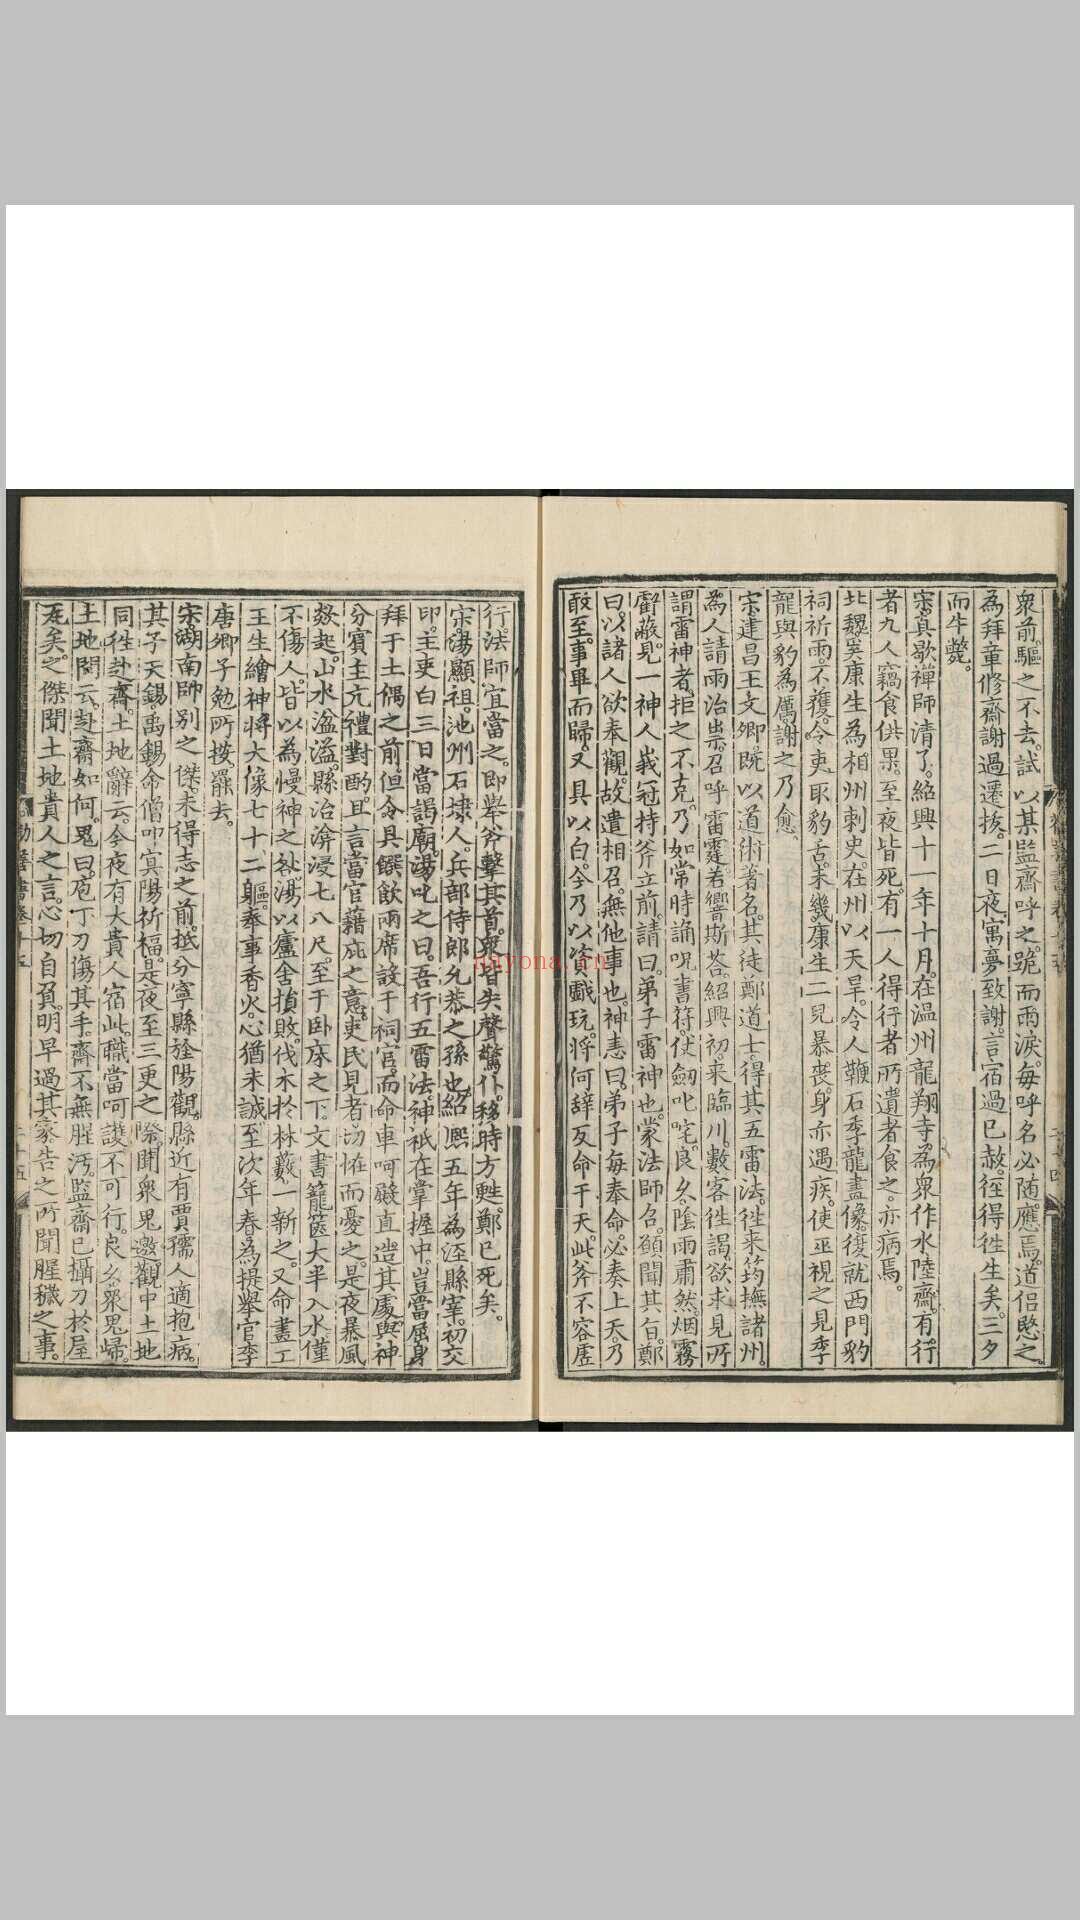 衆前驅之不去試以某監齋呼之跪而雨淚每呼名必随應焉道侣愍之
為拜章修齋謝過遷拔二日夜寓夢致謝言宿過已赦徑得徃生矣三夕
而牛斃
宋真歇禪師清了紹興十一年十月在温州龍翔寺為衆作水陸齋有行
者九人竊食供果至夜皆死有一人得行者所遺者食之亦病焉
北魏奚康生為相州刺史在州以天旱令人鞭石季龍畫像復就西門豹
祠祈雨不獲令吏取豹舌未幾康生二兒暴喪身亦遇疾使巫視之見季
龍與豹為厲謝之乃愈
宋建昌王文卿既以道術著名其徒鄭道士得其五雷法徃来筠撫諸州
為人請雨治祟召呼雷霆若響斯荅紹興初来臨川數客徃謁欲求見所
謂雷神者拒之不克乃如常時誦呪書符仗劔叱咤良久陰雨肅然烟霧
蔽見一神人峩冠持斧立前請曰弟子雷神也蒙法師召願聞其旨鄭
曰以諸人欲奉觀故遣相召無他事也神恚曰弟子每奉命必奏上天乃
敢至事畢而歸又具以白今乃以資戲玩将何辞反命于天此斧不容虚
行法師宜當之即舉斧擊其首衆皆失聲驚仆移時方甦鄭已死矣
宋湯顯祖池州石埭人兵部侍郎允恭之孫也紹熙五年為涇縣宰初交
印主吏白三日當謁廟湯叱之曰吾行五雷法神祇在掌握中豈當屈身
拜于土偶之前但令具饌飲兩席設于祠宫而命車呵殿直造其處與神
分賓主亢禮對酌且言當官藉庇之意吏民見者切恠而憂之是夜暴風
發起山水溢溢縣治渰浸七八尺至于卧床之下文書籠篋大半入水僅
不傷人皆以為慢神之咎湯以廬舍損敗伐木於林藪一新之又命畫工
王生繪神将大像七十二軀奉事香火心猶未誠至次年春為提舉官李
唐卿子勉所按罷去
宋湖南帥别之傑未得志之前抵分寧縣旌陽觀縣近有賈孺人適抱病
其子天錫禹錫命僧叩冥陽祈福是夜至三更之際聞衆鬼邀觀中土地
同徃赴齋土地辭云今夜有大貴人宿此職當呵護不可行良久衆鬼歸
土地問云赴齋如何鬼曰庖丁刀傷其手齋不無腥汚監齋已攝刀於屋
死矣之傑聞土地貴人之言心切自負明早過其家告之所聞腥穢之事
nayona.cn